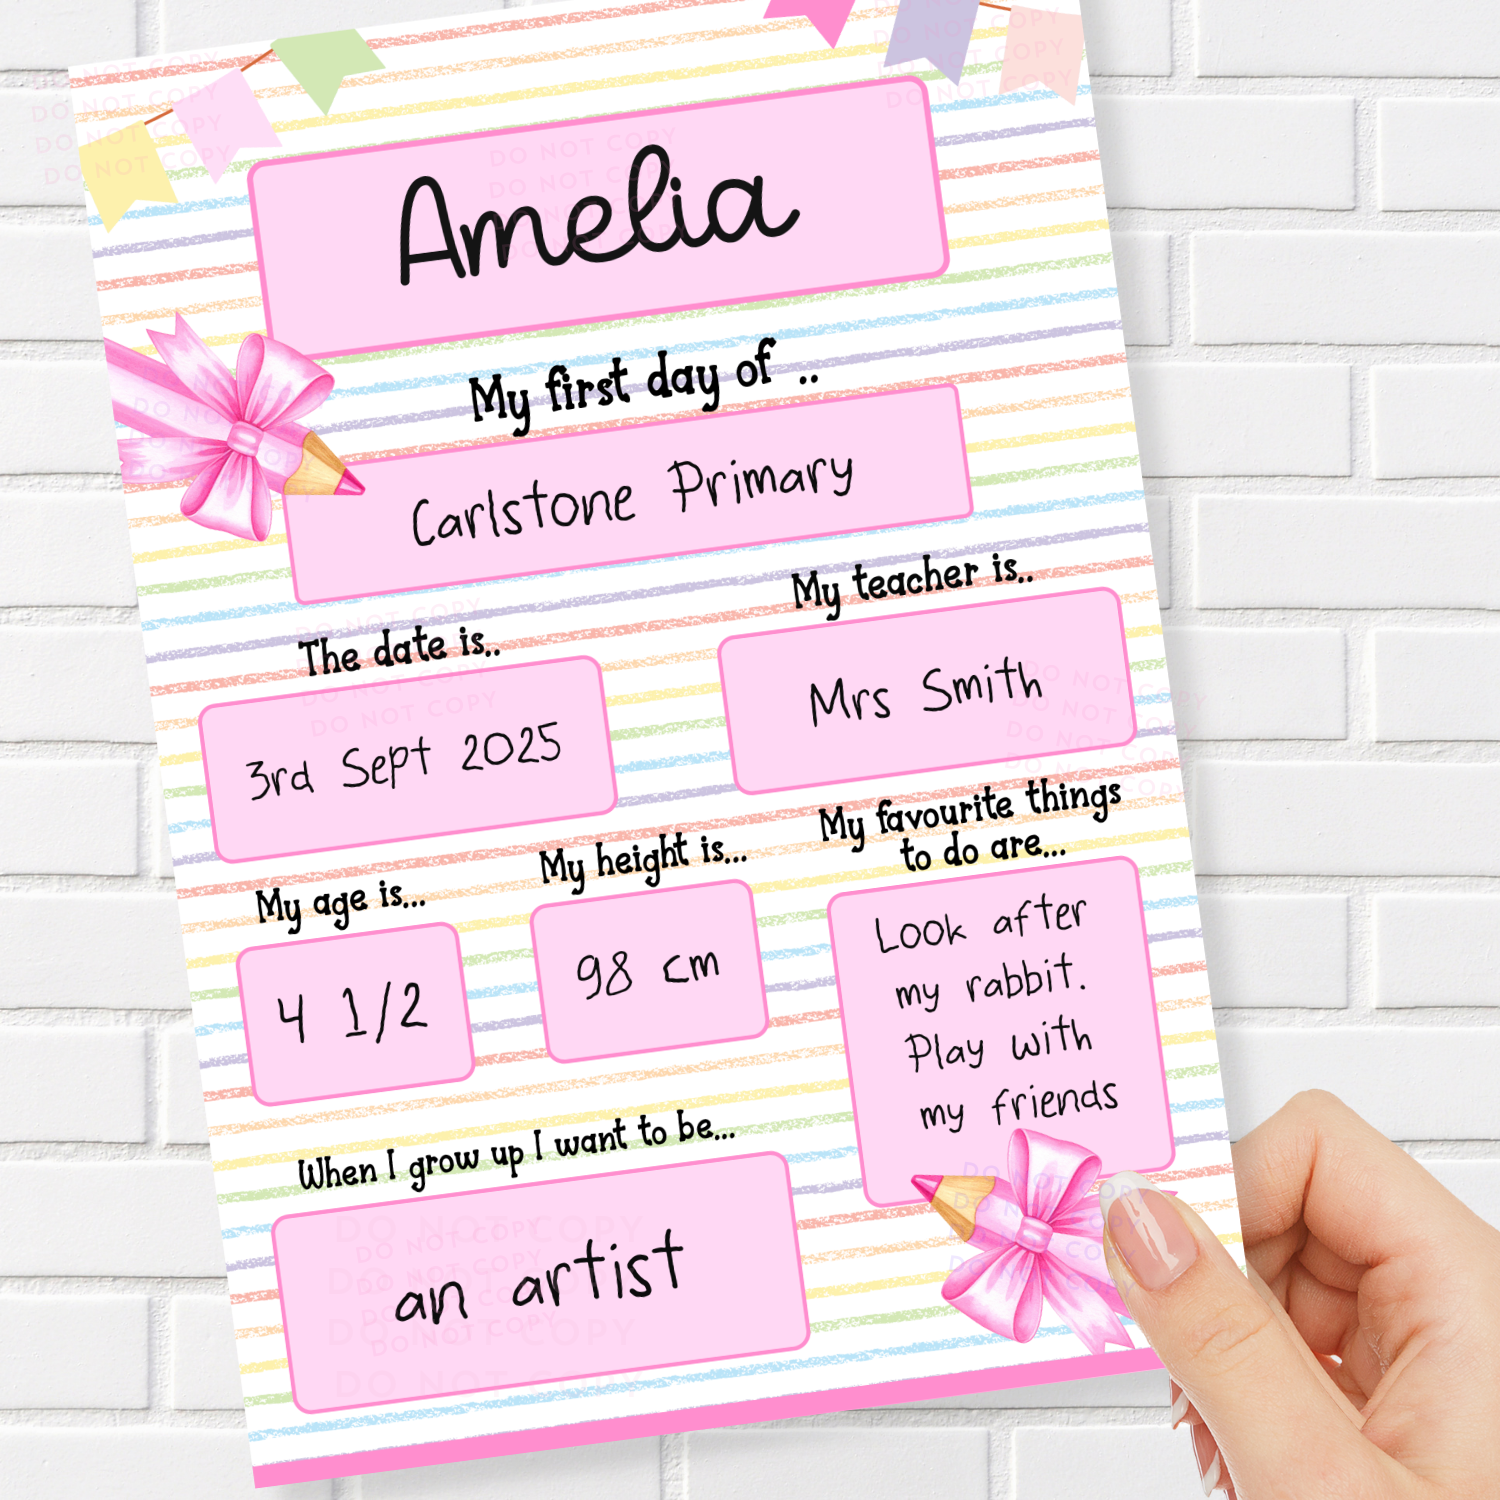 Amelia
My first day of ..
Carlstone Primary
My teacher is..
Mrs Smith
The date is..
3rd Sept 2025
My age is...
4 1/2
My height is...
98 cm
My favourite things
to do are...
Look after
my rabbit.
Play with
my friends
When I grow up I want to be...
an artist
DO NOT COPY
DO NOT COPY
DO NOT COPY
DO NOT COPY